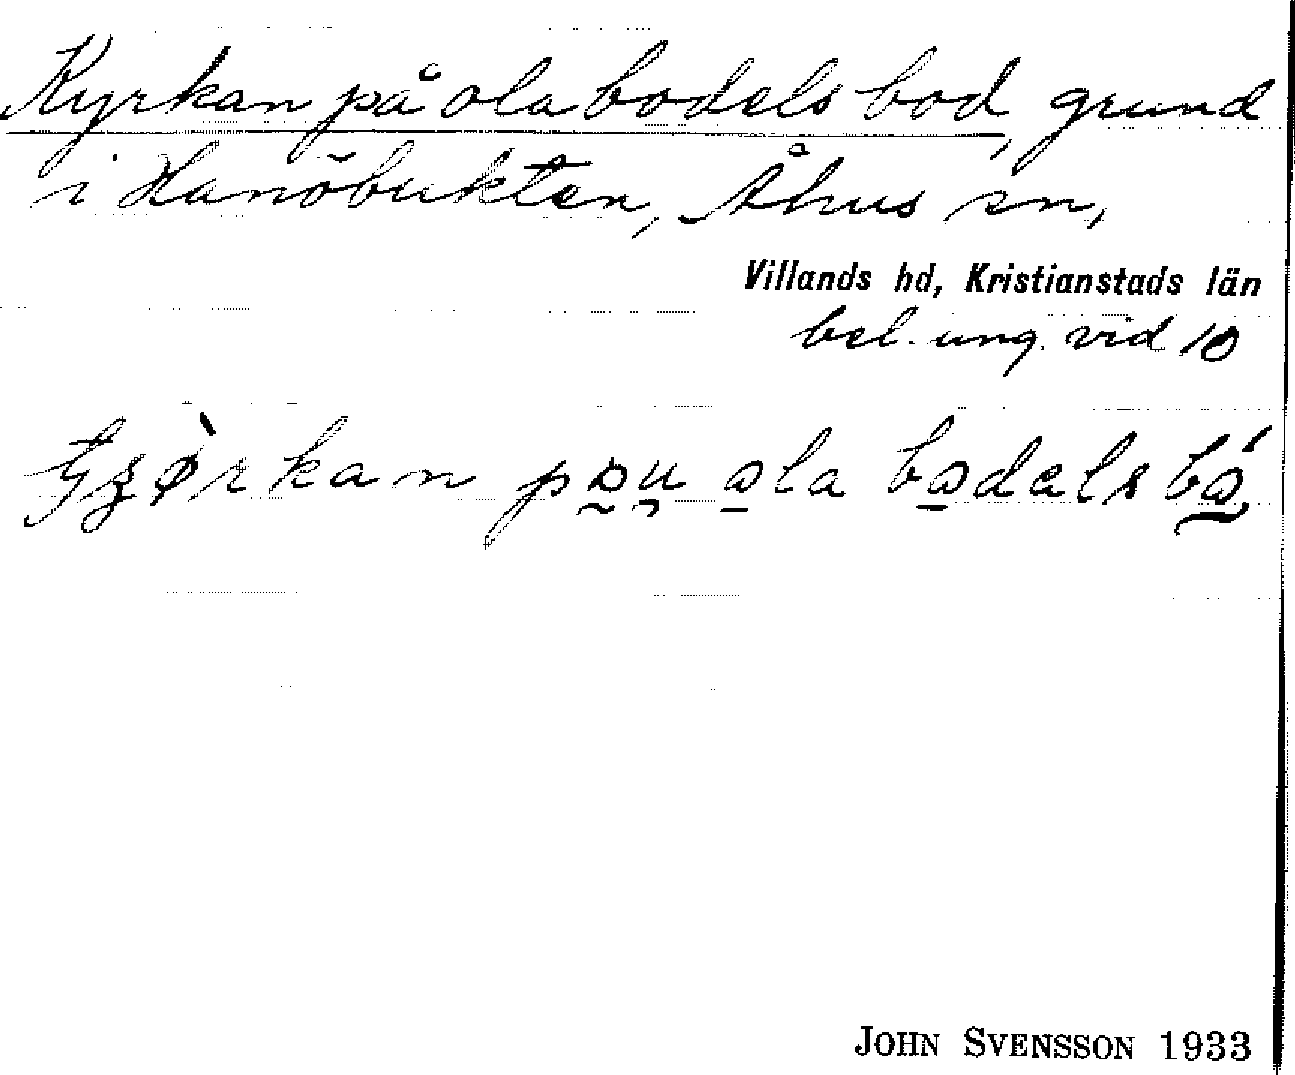 Kyrkan på ola bodels bod, grund
i Hanöbukten, Åhus sn,
Villands hd, Kristianstads län
bel. ung. vid 10
pɷu ɷla bɷdels
JOHN SVENSSON 1933